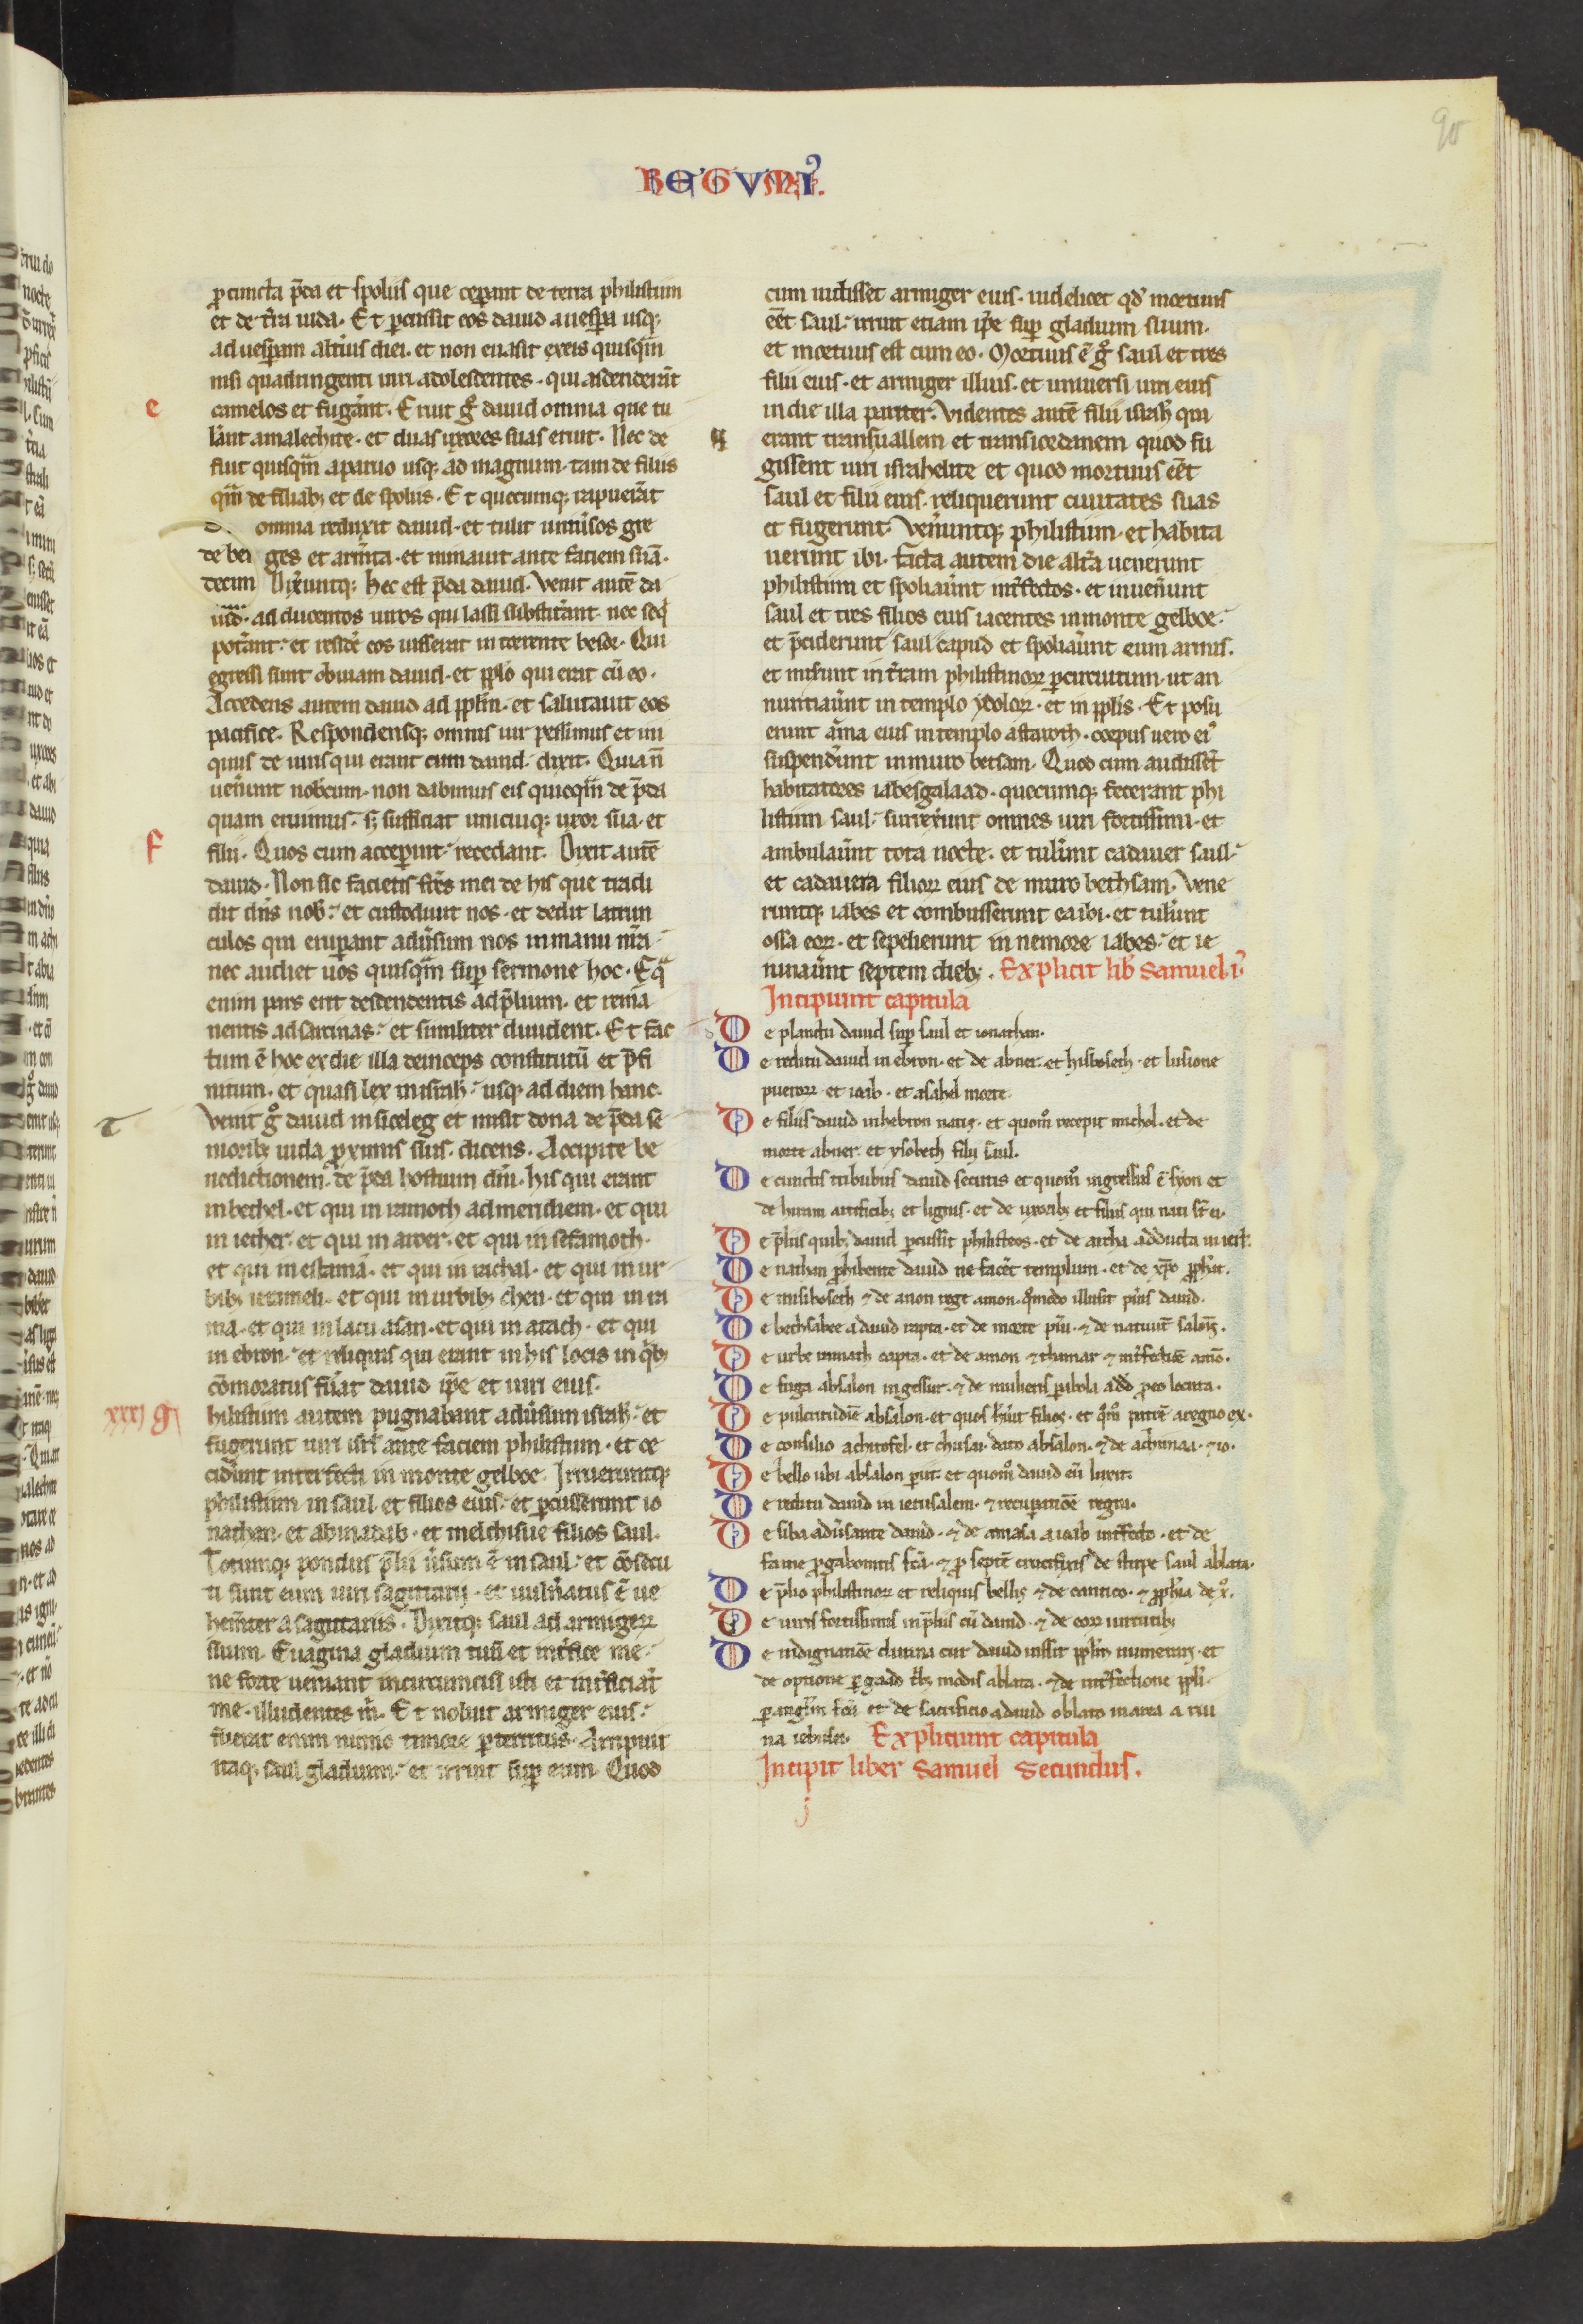 REGVM I
90
ꝓ cuncta p̄da et spoliis que ceperant de terra philistiim
et de t̄ra iuda. Et ꝑcussit eos dauid a uesꝑa usq;
ad uesꝑam alt̄ius diei. et non euasit ex eis quisq̄m
nisi quadringenti uiri adolescentes. qui ascenderāt
e
camelos et fugerānt. Eruit gͦ dauid omnia que tu
lerānt amalechite. et duas uxores suas eruit. Nec de
fuit quisq̄m a paruo usq; ad magnum. tam de filiis
q̄m de filiab; et de spoliis. Et quecumq; rapuerāt
omnia reduxit dauid. et tulit uniūsos gre
ges et armēta. et minauit ante faciem suā.
Dixeruntq; hec est p̄da dauid. Venit autē da
uid. ad ducentos uiros qui lassi substiterānt nec seq̄
poterānt. et residē eos iusserat in torrente besor. Qui
egressi sunt obuiam dauid. et ppło qui erat cū eo.
Accedens autem dauid ad ppłm. et salutauit eos
pacifice. Respondensq; omnis uir pessimus et ini
quus de uiris qui erant cum dauid. dixit. Quia n̄
uenerunt nobcum. non dabimus eis quicq̄m de p̄da
quam eruimus. s; sufficiat unicuiq; uxor sua. et
f
filii. Quos cum acceꝑint. recedant. Dixit autē
dauid. Non sic facietis frs̄ mei de his que tradi
dit dn̄s nob. et custodiuit nos. et dedit latrun
culos qui eruperant aduersum nos in manu nr̄a.
nec audiet uos quisq̄m suꝑ sermone hoc. Eq̄
enim pars erit descendentis ad p̄lium. et rema
nentis ad sarcinas. et similiter diuident. Et fac
tum ē hoc ex die illa deinceps constitutū et p̄fi
nitum. et quasi lex in israħ. usq; ad diem hanc.
Venit gͦ dauid in siceleg et misit dona de p̄da se
niorib; iuda ꝓximis suis. dicens. Accipite be
nedictionem. de p̄da hostium dn̄i. his qui erant
in bethel. et qui in ramoth ad meridiem. et qui
in iether. et qui in aroer. et qui in sefamoth.
et qui in estama. et qui in rachal. et qui in ur
bib; ierameli. et qui in urbib; cheni. et qui in ra
ma. et qui in lacu asan. et qui in atach. et qui
in ebron. et reliquis qui erant in his locis in q̄b;
cōmoratus fuerat dauid ip̄e et uiri eius.
xxxj
hilistiim autem pugnabant aduersum israħ. et
fugerunt uiri isrł ante faciem philistiim. et ce
ciderunt interfecti in monte gelboe. Irrueruntq;
philistiim in saul. et filios eius. et ꝑcusserunt io
nathan. et abinadab. et melchisue filios saul.
Totumq; pondus p̄lii ūsum ē in saul. et cōsecu
ti sunt eum uiri sagittarij. et uulneratus ē ue
hementer a sagittariis. Dixitq; saul ad armigerȝ
suum. Euagina gladium tuū et interfice me.
ne forte ueniant incircumcisi isti et interficiāt
me. illudentes m̄. Et noluit armiger eius.
fuerat enim nimio timore ꝑterritus. Arripuit
itaq; saul gladium. et irruit suꝑ eum. Quod
cum uidisset armiger eius. uidelicet qd̄ mortuus
eēt saul. irruit etiam ip̄e suꝑ gladium suum.
et mortuus est cum eo. Mortuus ē gͦ saul et tres
filii eius. et armiger illius. et uniuersi uiri eius
in die illa pariter. Videntes autē filii israħ qui
erant trans uallem et trans iordanem quod fu
gissent uiri israhelite et quod mortuus eēt
saul et filii eius. reliquerunt ciuitates suas
et fugerunt. Veneruntq; philistiim. et habita
uerunt ibi. facta autem die alt̄a uenerunt
philistiim et spoliaūnt interfectos. et inuenerunt
saul et tres filios eius iacentes in monte gelboe.
et p̄ciderunt saul capud et spoliaūnt eum armis.
et miserunt in t̄ram philistinoꝝ ꝑ circuitum. ut an
nuntiaūnt in templo ydoloꝝ. et in ppłis. Et posu
erunt arma eius in templo astaroth. corpus uero ei
suspenderunt in muro betsam. Quod cum audissēt
habitatores iabesgalaad. quecumq; fecerant phi
listiim saul. surrexerunt omnes uiri fortissimi. et
ambulaūnt tota nocte. et tulerunt cadauer saul.
et cadauera filioꝝ eius de muro bethsam. Vene
runtq; iabes et combusserunt ea ibi. et tulerunt
ossa eoꝝ. et sepelierunt in nemore iabes. et ie
iunaūnt septem dieb;. Explicit lib samuel i.
Incipiunt capitula
De planctu dauid suꝑ saul et ionathan.
De reditu dauid in ebron. et de abner. et hisboseth. et lusione
pueroꝝ. et ioab. et asahel morte.
De filiis dauid in hebron natis. et quom̄ recepit michol. et de
morte abner. et ysobeth filij saul.
De cunctis tribubus dauid secutis et quom̄ ingressus ē syon et
de hiram artificib; et lignis. et de uxorib; et filiis qui nati st̄ ei.
De p̄liis quib; dauid ꝑcussit philisteos. et de archa adducta in ierł.
De nathan ꝓhibente dauid ne facēt templum. et de xp̄o ꝓphāt.
De misiboseth ⁊ de anon rege amon. q̄modo illusit pueris dauid.
De bethsabee a dauid rapta. et de morte pueri. ⁊ de natiuit̄ salom̄.
De urbe urinath capta. et de amon ⁊ thamar ⁊ interfectiōe amō.
De fuga absalon in gessur. ⁊ de mulieris parabola ad dd̄ ꝓ eo locuta.
De pulcritudīe absalon. et quos habuit filios. et q̄m̄ patrē a regno ex.
De consilio achitofel. et chusai. dato absalon. ⁊ de achimaa. ⁊ io.
De bello ubi absalon perit. et quom̄ dauid eū luxit.
De reditu dauid in ierusalem. ⁊ recuperatiōe regni.
De siba aduersante dauid. ⁊ de amasa a ioab interfecto. et de
fame ꝓ gabonitis fc̄a. ⁊ ꝓ septē crucifixis de stirpe saul ablata.
De p̄lio philistinoꝝ et reliquis bellis ⁊ de cantico. ⁊ ꝓphia de x̄.
De uiris fortissimis in p̄liis cū dauid. ⁊ de eoꝝ uirtutib;
De indignatiōe diuina cur dauid iussit ppłm numerari. et
de optione ꝑ gaad trib; modis ablata. ⁊ de interfectione ppłi.
ꝑ angłm fc̄a et de sacrificio a dauid oblato in area a riu
na iebusei. Expliciunt capitula
Incipit liber samuel secundus.